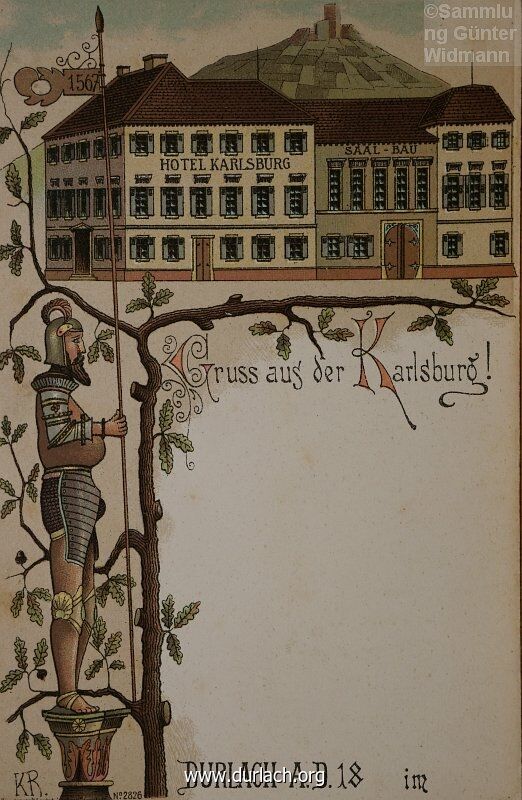 ©Sammlu
ng Günter
Widmann
1567
HOTEL KARLSBURG
SAAL-BAU
Gruss aus der Karlsburg!
www.durlach.org
DURLACH A.D. 18 im
KR.
No 2826